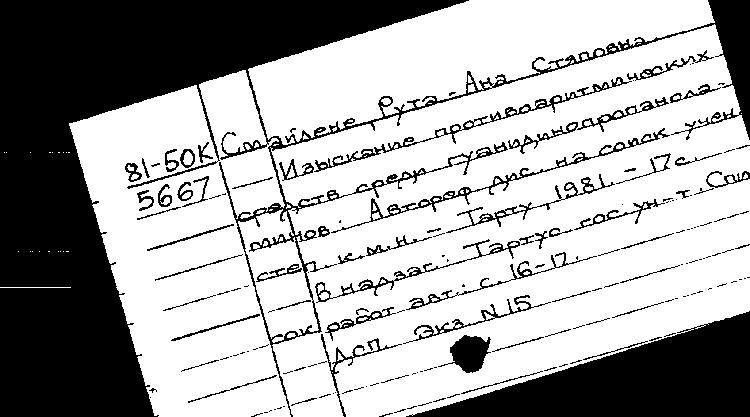 81-50К Смайлене, Рута-Ана Стяповна.
5667 Изыскание противоаритмических
средств среди гуанидинопропанола-
минов: Автореф дис. на соиск. учен
степ. к.м.н. - Тарту, 1981. - 17с.
В надзаг.: Тартус. гос. ун-т. Спи
сок работ авт.: с. 16-17.
ДСП. Экз N 15